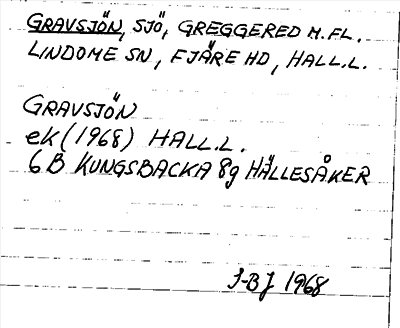 GRAVSJÖN, SJÖ, GREGGERED M.FL.
LINDOME SN, FJÄRE HD, HALL.L.
GRAVSJÖN
ek (1968) HALL.L.
6B KUNGSBACKA 8g HÄLLESÅKER
J-BJ 1968